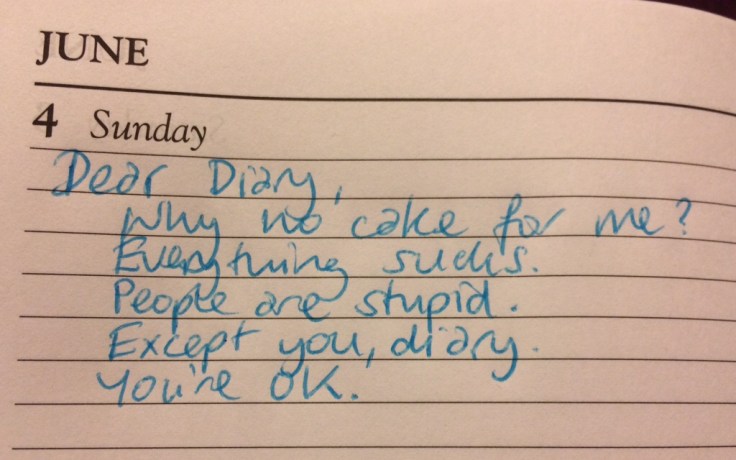 JUNE
4 Sunday
Dear Diary,
Why no cake for me?
Everything sucks.
People are stupid.
Except you, diary.
You're OK.